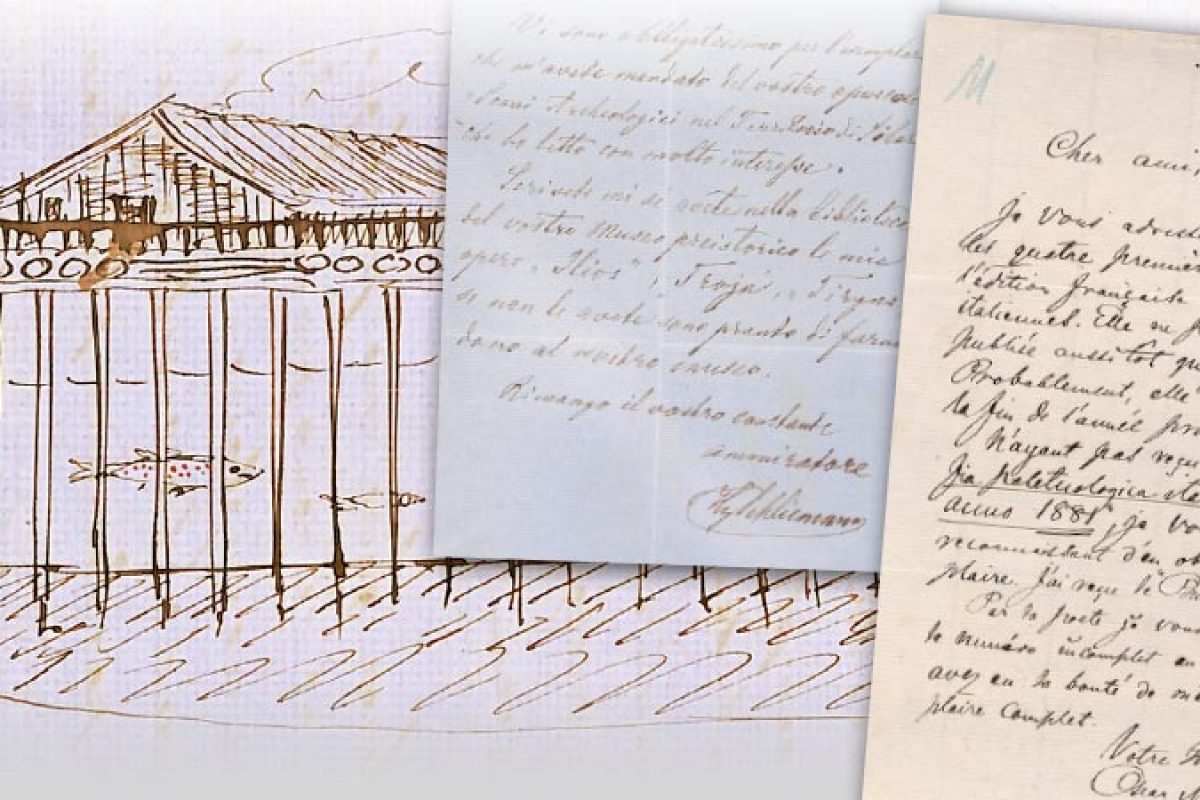 Vi sono obbligatissimo per l'esemplare
che m'avete mandato del vostro opuscolo
Archeologici nel Territorio di
che ho letto con molto interesse.
Scrivete mi se avete nella biblioteca
del vostro museo preistorico le mie
opere „Ilios", „Troja", „Tiryns
se non le avete sono pronto di farne
dono al vostro museo.
Rimango il vostro constante
ammiratore
HySchliemann
11
Cher ami,
Je vous adresse
les quatre premiè
l'édition française
italiennes. Elle ne
publiée aussitot que
Probablement, elle
la fin de l'année pro
N'ayant pas reçu
paletnologica ita
anno 1881, je vo
reconnaissant d'en
plaire. J'ai reçu le
Par la poste je vous
le numéro incomplet en
avez eu la bonté de m
plaire complet.
Votre
Oscar M